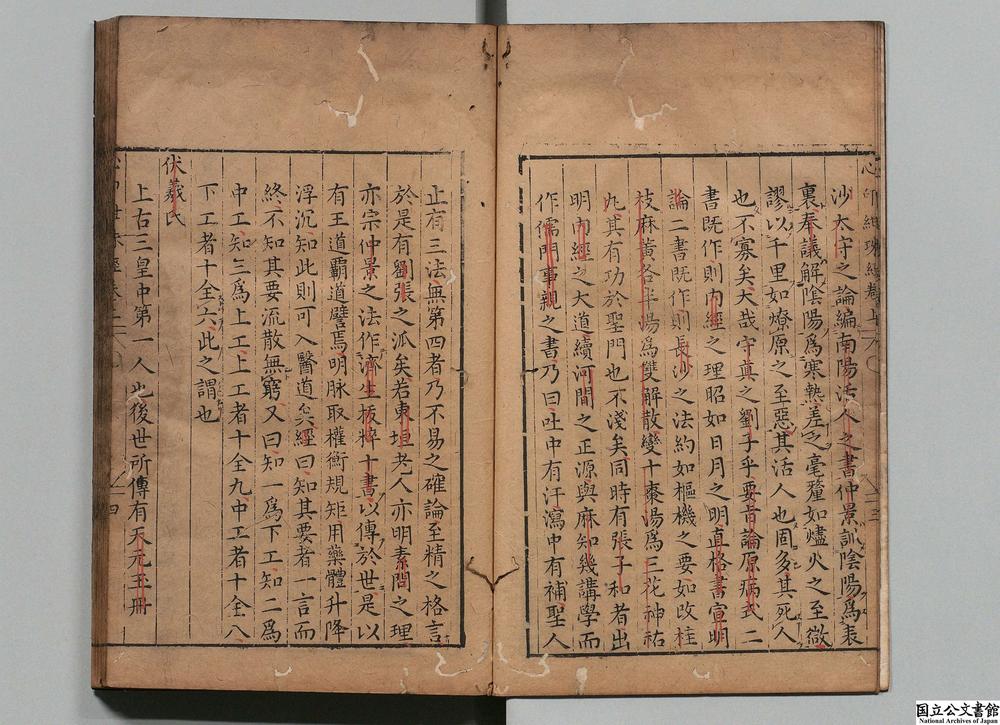 沙太守之論編南陽活人之書仲景訓陰陽爲表
裏奉議解陰陽爲寒熱差之毫釐如爐火之至微
謬以千里如燎原之至惡其活人也固多其死人
也不寡矣大哉守真之劉子乎要旨論原病式二
書既作則內經之理昭如日月之明直格書宣明
論二書既作則長沙之法約如樞機之要如改桂
枝麻黃各半湯爲雙解散變十棗湯爲三花神祐
丸其有功於聖門也不淺矣同時有張子和者出
明內經之大道續河間之正源與麻知幾講學而
作儒門事親之書乃曰吐中有汗瀉中有補聖人
止有三法無第四者乃不易之確論至精之格言
於是有劉張之派矣若東垣老人亦明素問之理
亦宗仲景之法作濟生拔粹十書以傳於世是以
有王道霸道譬焉明脉取權衡規矩用藥體升降
浮沉知此則可入醫道矣經曰知其要者一言而
終不知其要流散無窮又曰知一爲下工知二爲
中工知三爲上工上工者十全九中工者十全八
下工者十全六此之謂也
伏羲氏
上古三皇中第一人也後世所傳有天元玉冊
国立公文書館
National Archives of Japan